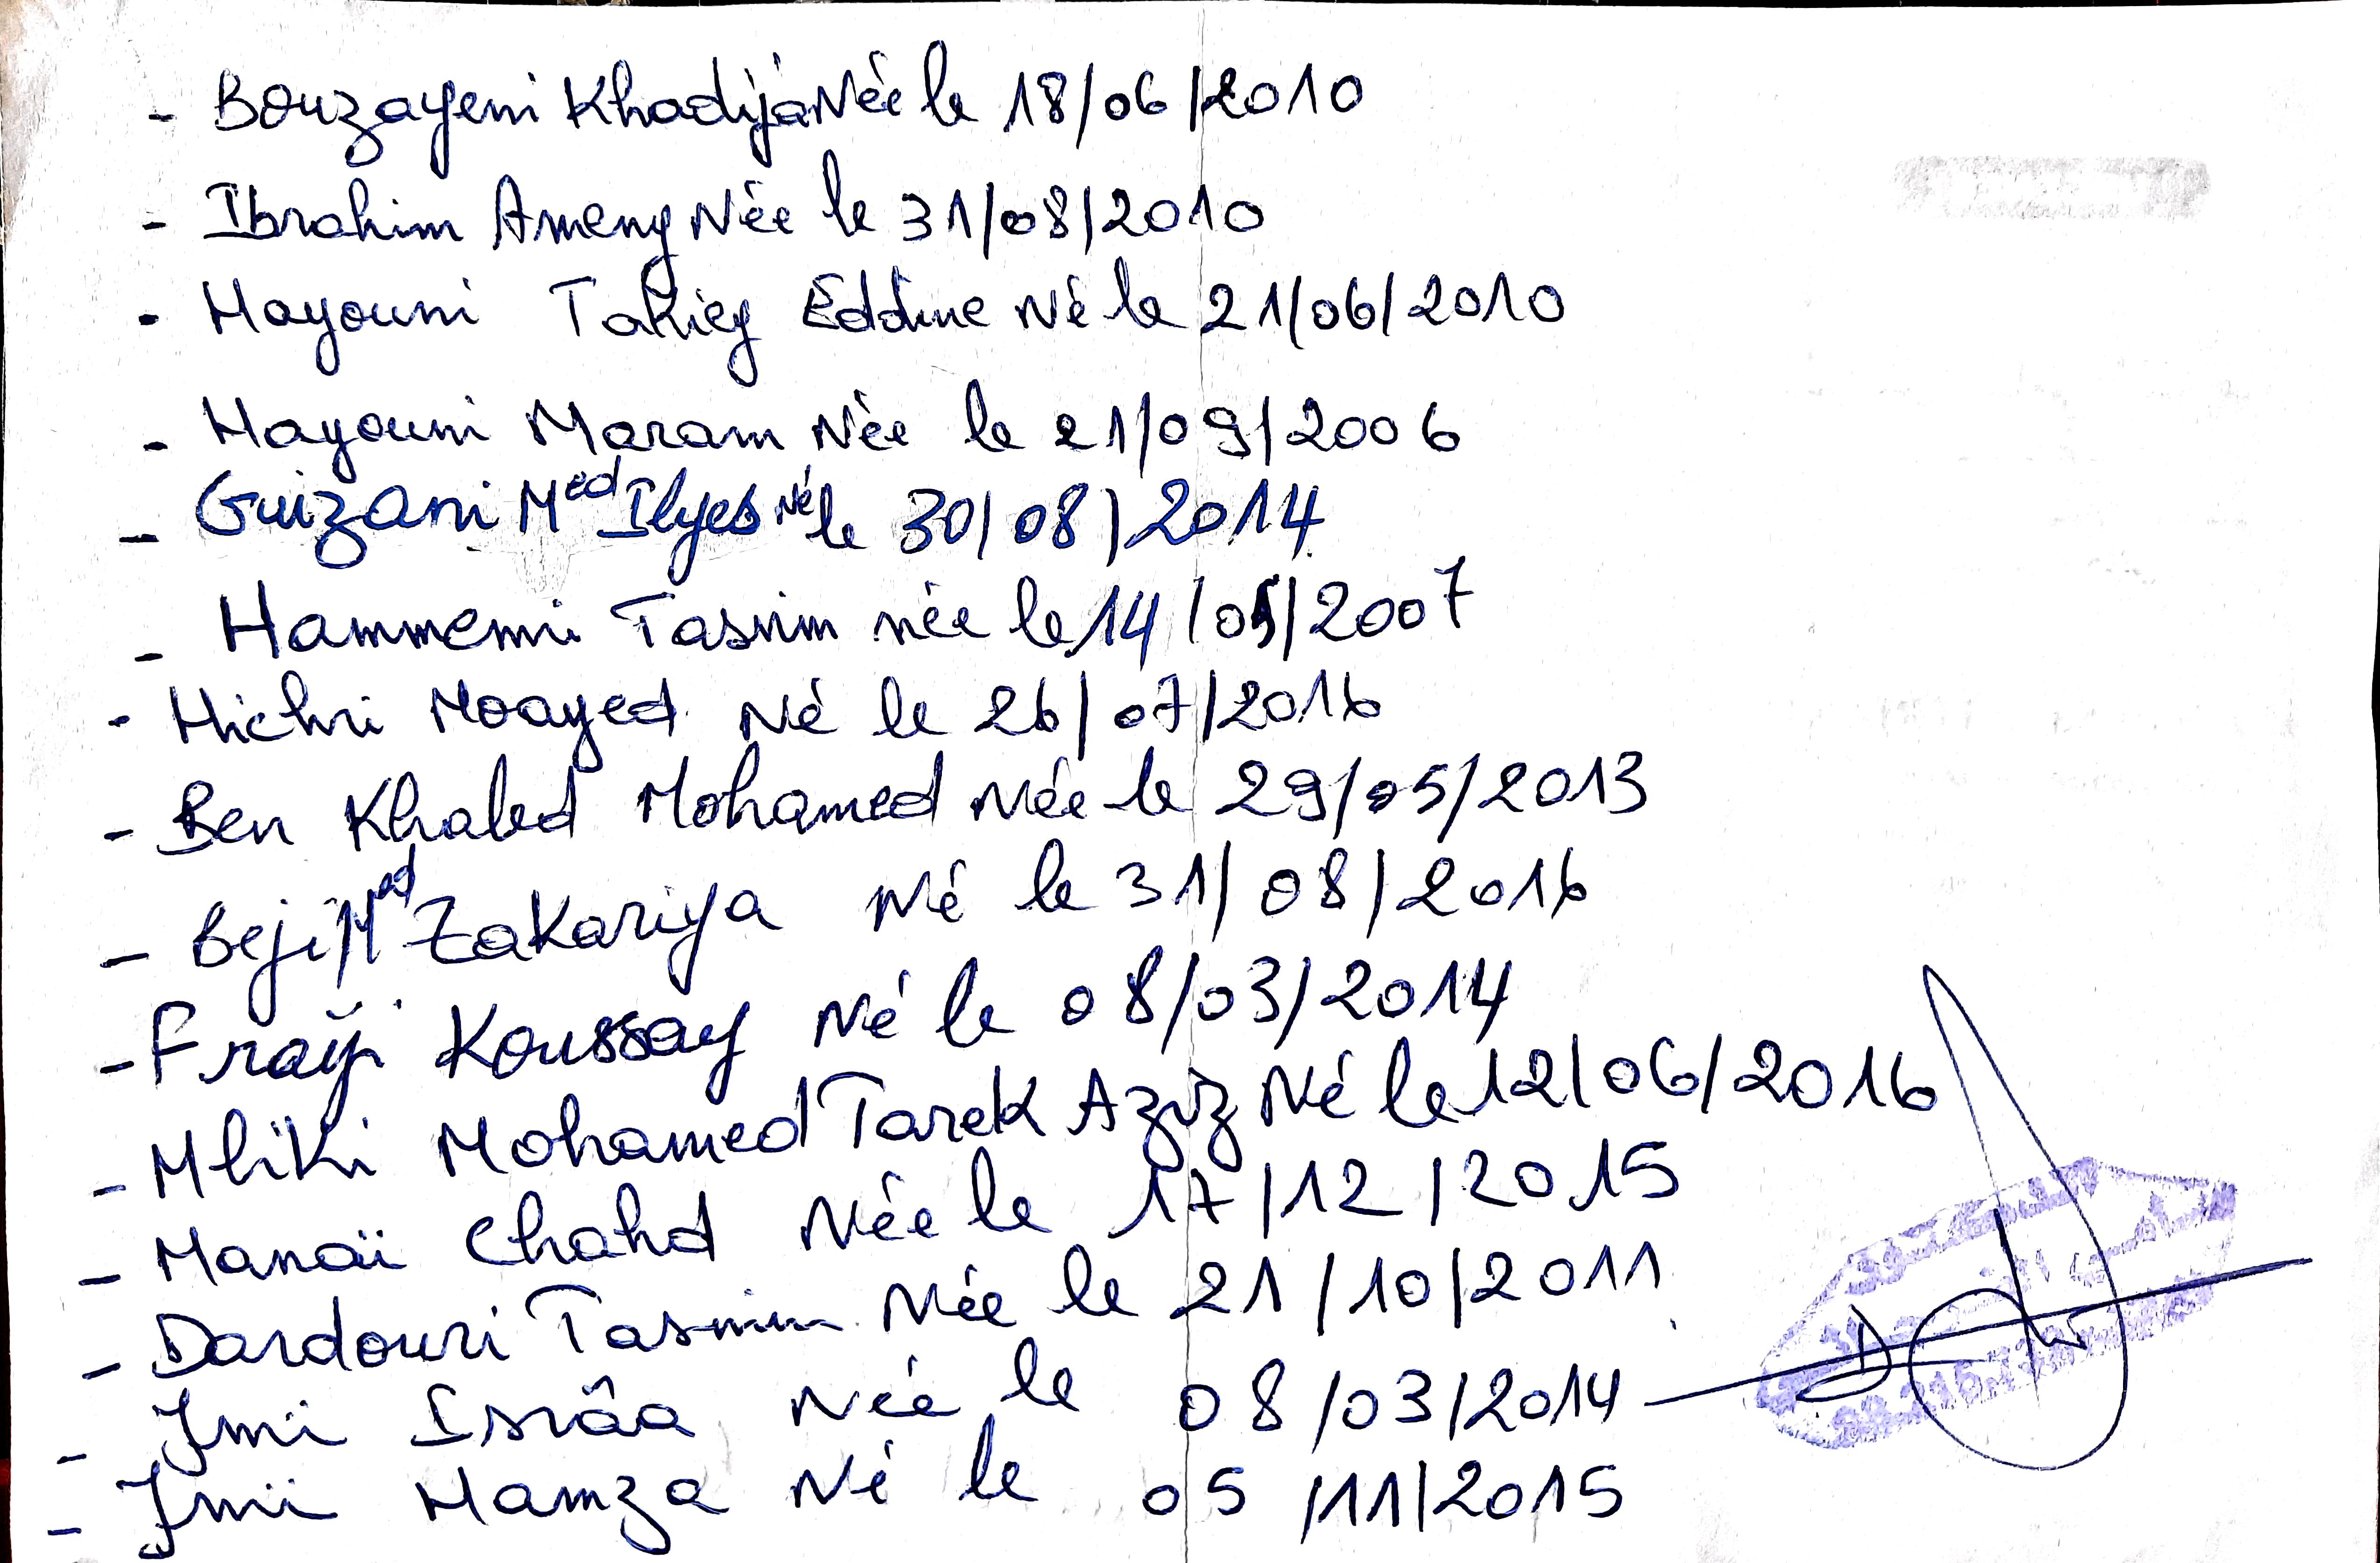 - Bouzayeni Khadija Née le 18/06/2010
- Ibrahim Ameny Née le 31/08/2010
- Hayouni Takiey Eddine Né le 21/06/2010
- Hayouni Maram Née le 21/09/2006
- Guizani Med Ilyes né le 30/08/2014
- Hammemi Tasnim née le 14/05/2007
- Hichri Moayed Né le 26/07/2016
- Ben Khaled Mohamed Née le 29/05/2013
- Beji Med Zakariya Né le 31/08/2016
- Fraiji Koussay Né le 08/03/2014
- Mliki Mohamed Tarek Aziz Né le 12/06/2016
- Manaï Chahd Née le 17/12/2015
- Dardouri Tasnim Née le 21/10/2011
- Isrâa Née le 08/03/2014
- Hamza Né le 05/11/2015